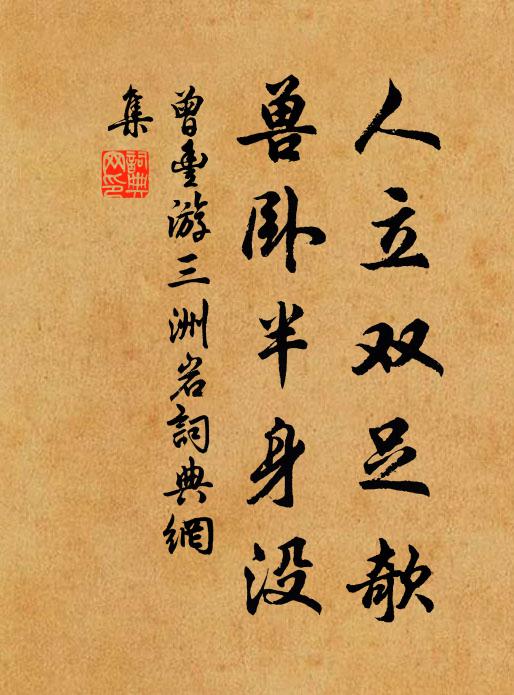 人立双足欹
兽卧半身没
曾丰游三洲岩詞典網
集
詞典网印